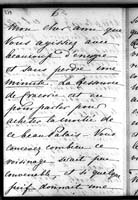 Mon cher ami que
vous agissiez avec
beaucoup d'énergie
et sans perdre une
minute. La besogne
de Cracovie est au
pour parler pour
acheter la moitié de
ce beau Palais. Vous
concevez combien ce
voisinage serait peu
convenable, et si quelque
juif donnait une